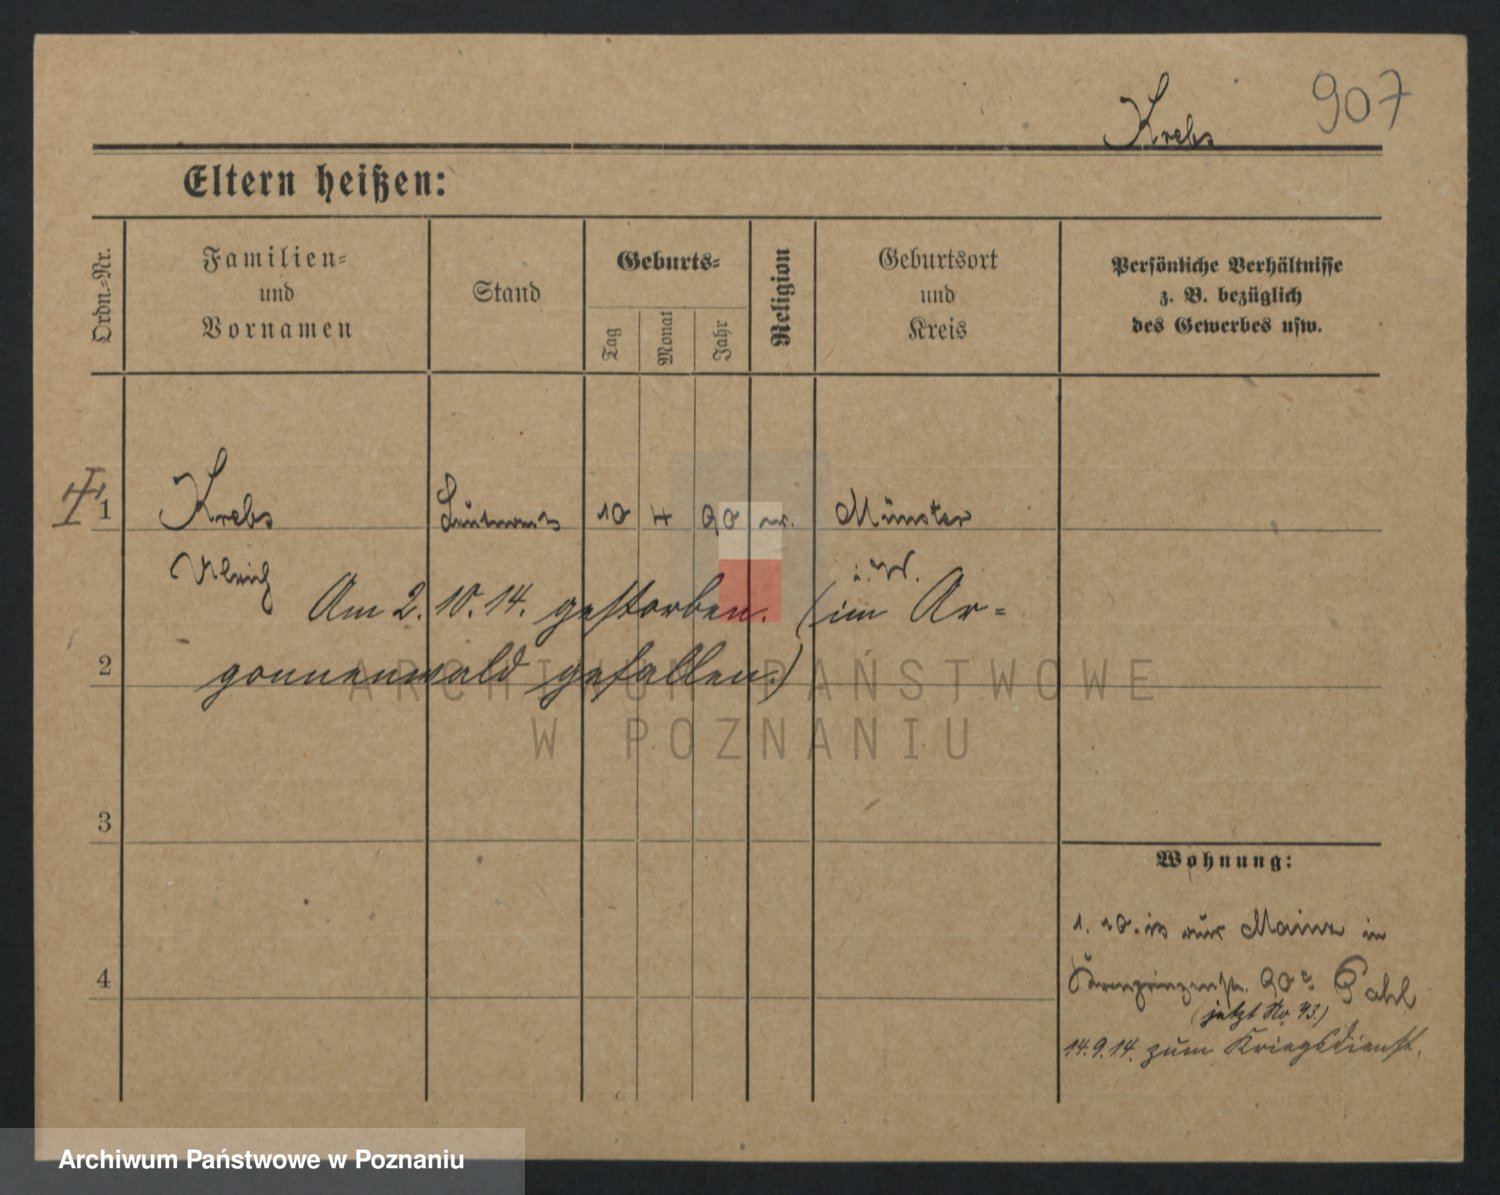 907
Krebs
Eltern heißen:
Ordn.-Nr.
Familien-
und
Vornamen
Stand
Geburts-
Tag
Monat
Jahr
Religion
Geburtsort
und
Kreis
Persönliche Verhältnisse
z. B. bezüglich
des Gewerbes usw.
1 Krebs Leutnant 10 4 90 Münster
Ulrich i. W.
Am 2. 10. 14. gestorben. (im Ar-
gonnenwald gefallen.)
2
3
4
Wohnung:
1. 10. 13 aus Mainz in
Kronprinzenstr. 90 Pahl
(jetzt No 43.)
14.9.14. zum Kriegsdienst.
ARCHIWUM PAŃSTWOWE
W POZNANIU
Archiwum Państwowe w Poznaniu